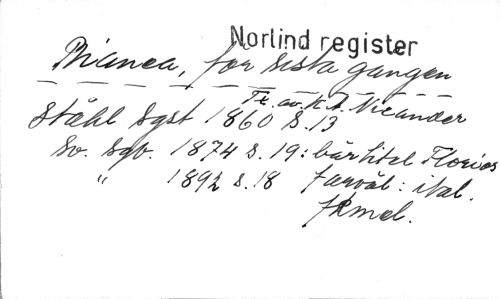 Norlind register
Bianca, för sista gången
Tr. av K. A. Nicander
Ståhl Sgst 1860 S.13
Sv. Sgb. 1874 s.19: bär titel Florios
" 1892 s.18 farväl: ital.
fkmel.